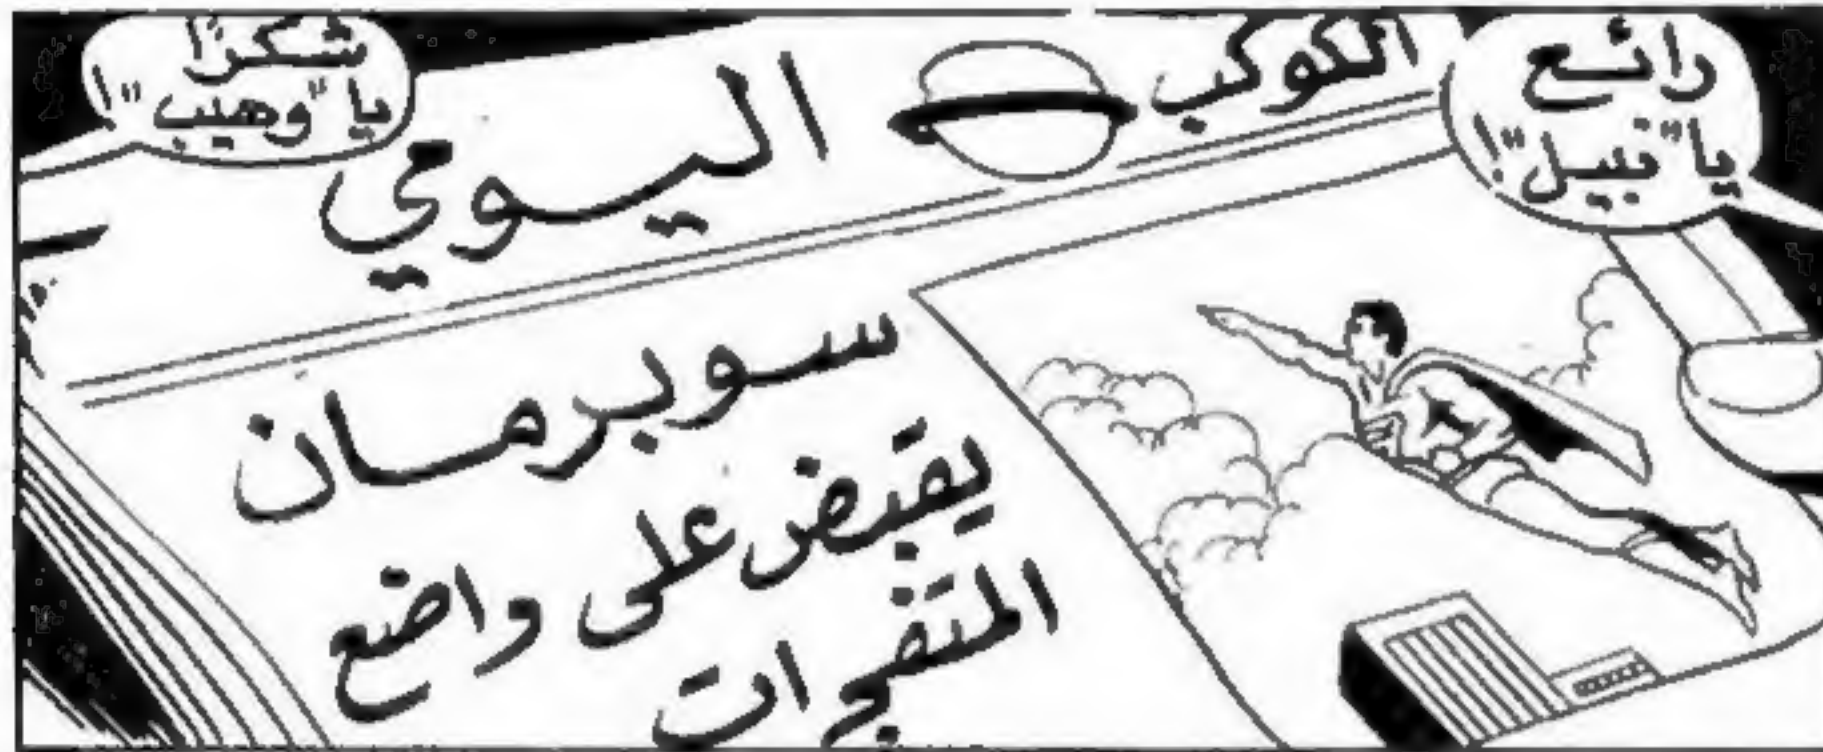 رائع
يا "نبيل"!
شكرًا
يا "وهيب"!
الكوكب اليومي
سوبرمان
يقبض على واضع
المتفجرات